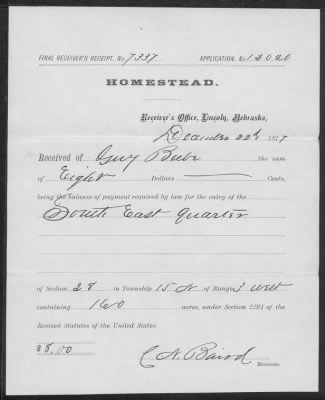 FINAL RECEIVER'S RECEIPT, No. 7337 APPLICATION, No.
HOMESTEAD.
Receiver's Office, Lincoln, Nebraska,
December 22d 1877
Received of Guy Beebe the sum
of Eight Dollars Cents,
being the balance of payment required by law for the entry of the
South East Quarter
of Section 28 in Township 15 N of Range 3 West
containing 160 acres, under Section 2291 of the
Revised Statutes of the United States.
$8.00
C. N. Baird
Receiver.